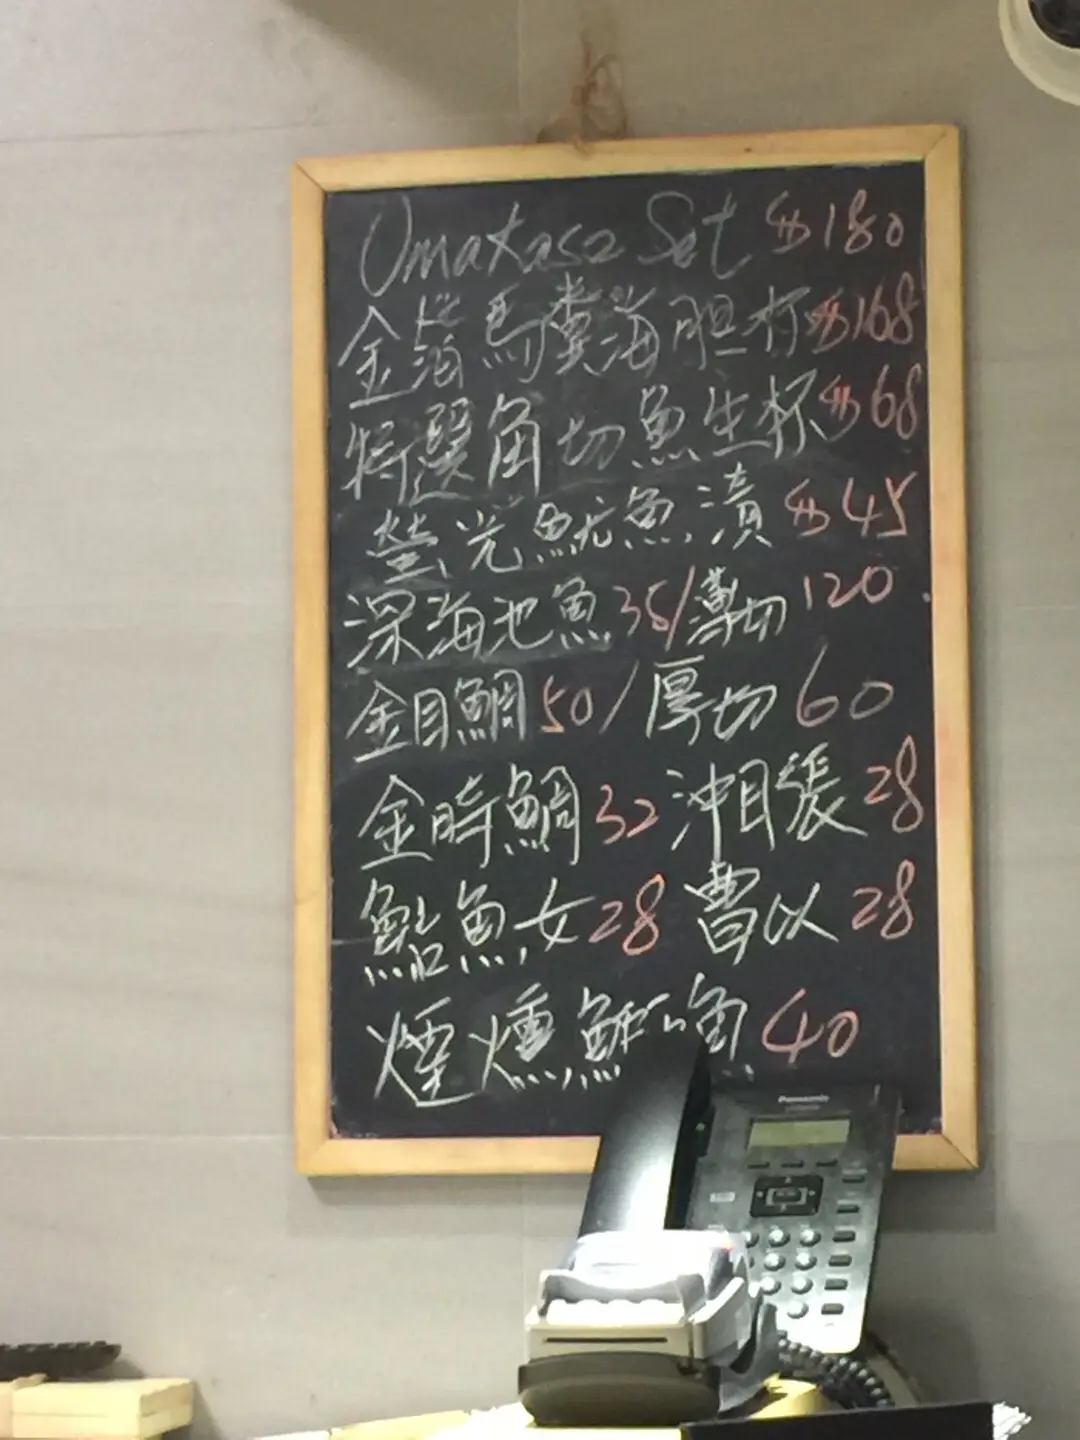 Omakase Set $180
金箔馬糞海胆杯$168
特選角切魚生杯$68
螢光魷魚漬$45
深海池魚35/薄切120
金目鯛50/厚切60
金時鯛32 沖目張28
鮎魚女28 曹以28
煙燻鮪魚40
Panasonic